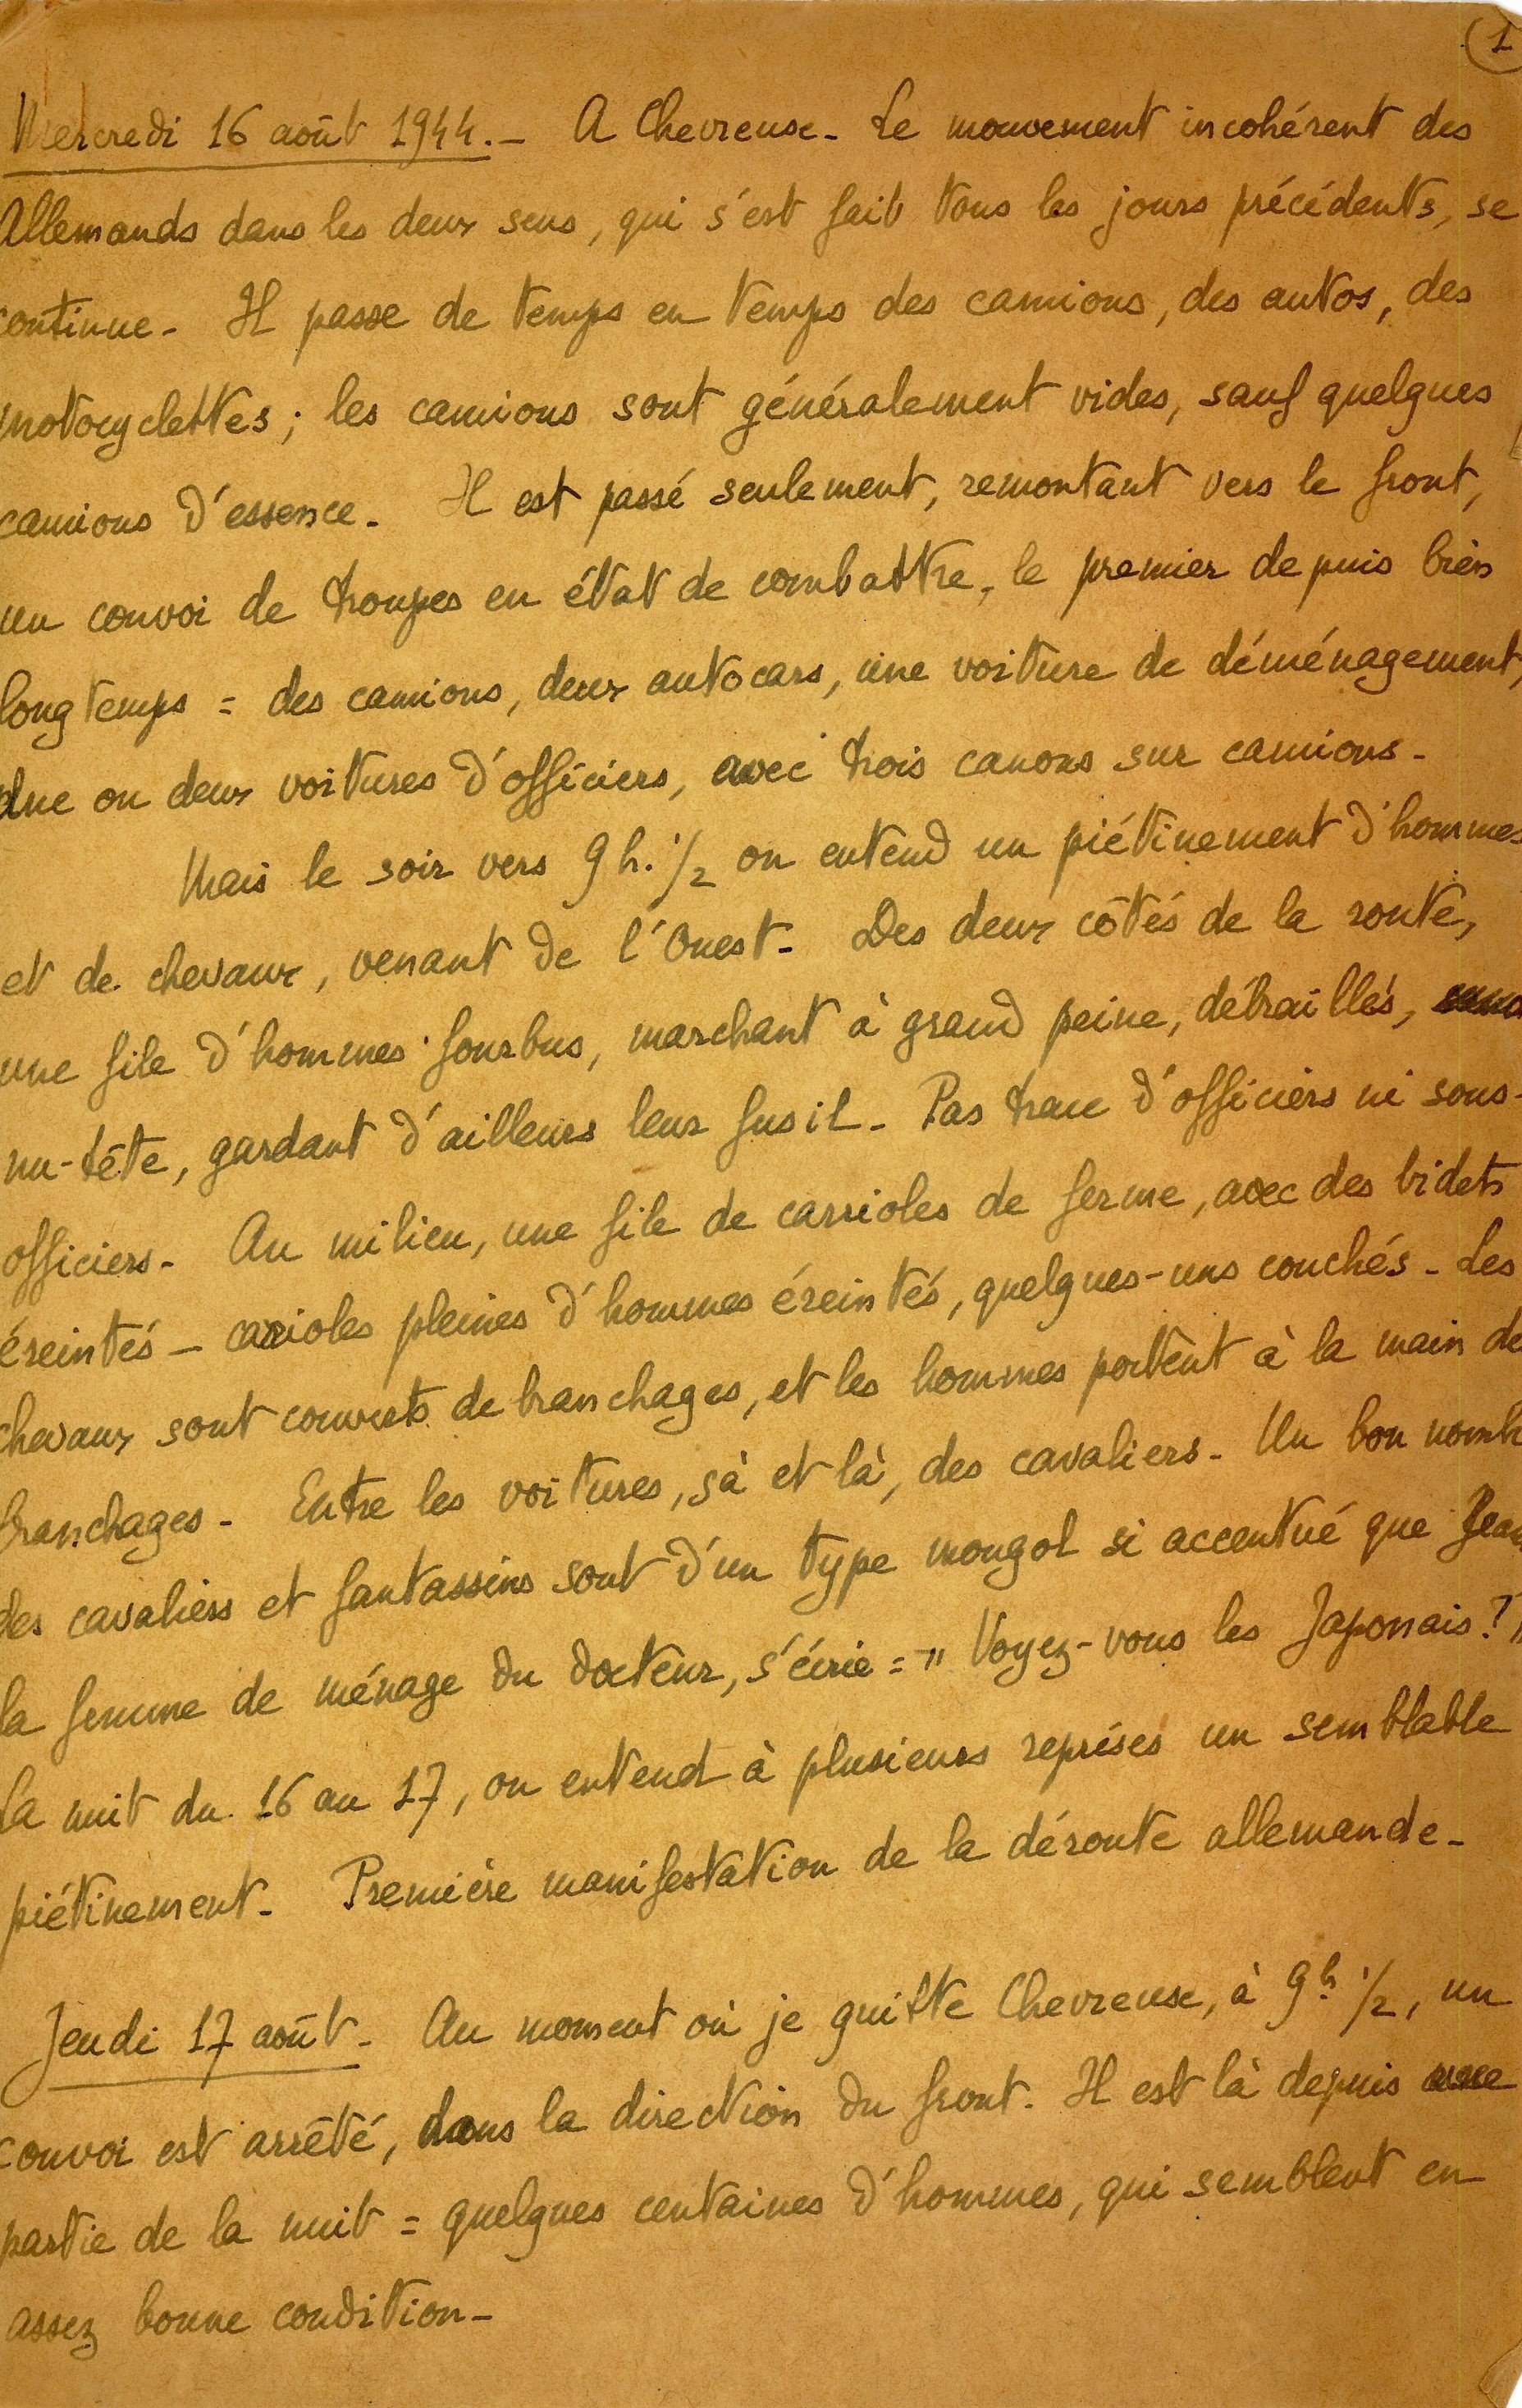 1
Mercredi 16 août 1944. - A Chevreuse - Le mouvement incohérent des
Allemands dans les deux sens, qui s'est fait tous les jours précédents, se
continue - Il passe de temps en temps des camions, des autos, des
motocyclettes ; les camions sont généralement vides, sauf quelques
camions d'essence - Il est passé seulement, remontant vers le front,
un convoi de troupes en état de combattre, le premier depuis bien
longtemps = des camions, deux autocars, une voiture de déménagement,
une ou deux voitures d'officiers, avec trois canons sur camions -
Mais le soir vers 9 h. 1/2 on entend un piétinement d'hommes
et de chevaux, venant de l'Ouest - Des deux côtés de la route,
une file d'hommes fourbus, marchant à grand peine, débraillés,
nu-tête, gardant d'ailleurs leur fusil - Pas trace d'officiers ni sous-
officiers - Au milieu, une file de carrioles de ferme, avec des bidets
éreintés - carrioles pleines d'hommes éreintés, quelques-uns couchés - Les
chevaux sont couverts de branchages, et les hommes portent à la main de
branchages - Entre les voitures, sà et là, des cavaliers - Un bon nomb
des cavaliers et fantassins sont d'un type mongol si accentué que Jean
la femme de ménage du docteur, s'écrie = " Voyez-vous les Japonais ? "
La nuit du 16 au 17, on entend à plusieurs reprises un semblable
piétinement - Première manifestation de la déroute allemande -
Jeudi 17 août - Au moment où je quitte Chevreuse, à 9h 1/2, un
convoi est arrêté, dans la direction du front. Il est là depuis une
partie de la nuit = quelques centaines d'hommes, qui semblent en
assez bonne condition -